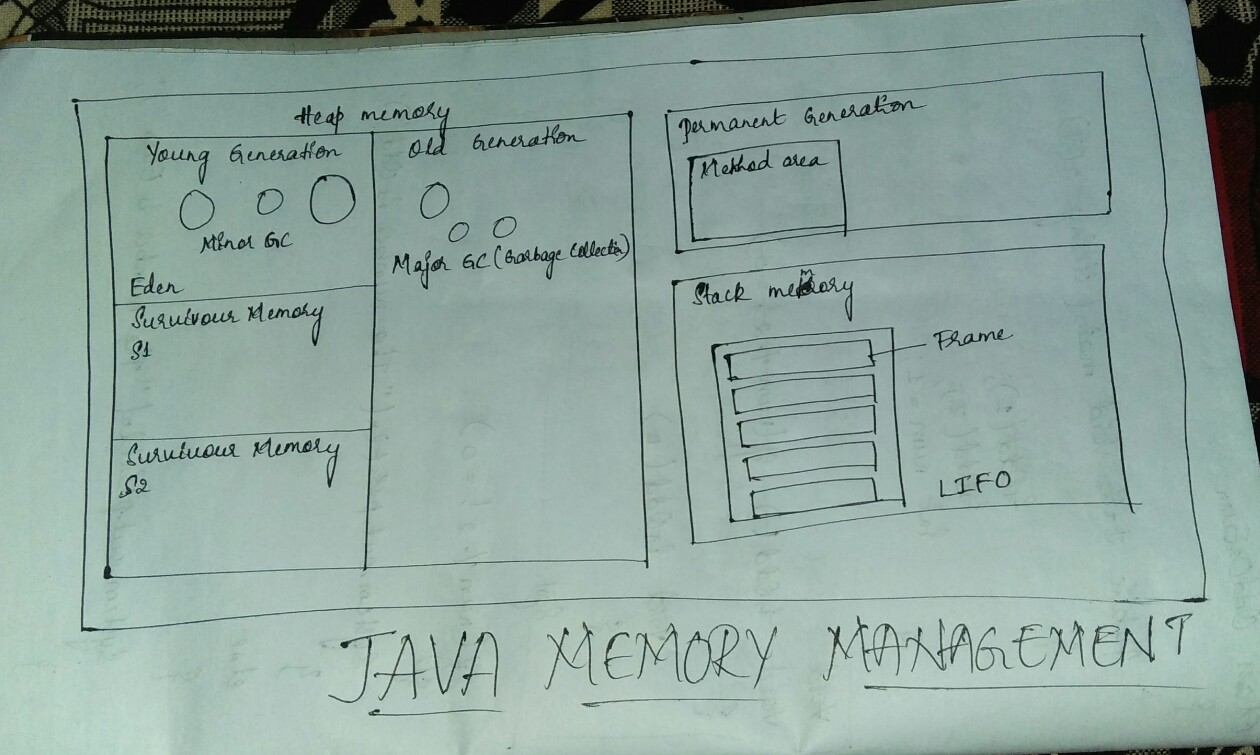 Heap memory
Young Generation
Minor GC
Eden
Survivour Memory
S1
Survivour Memory
S2
Old Generation
Major GC (Garbage Collectin)
Permanent Generation
Method area
Stack memory
Frame
LIFO
JAVA MEMORY MANAGEMENT